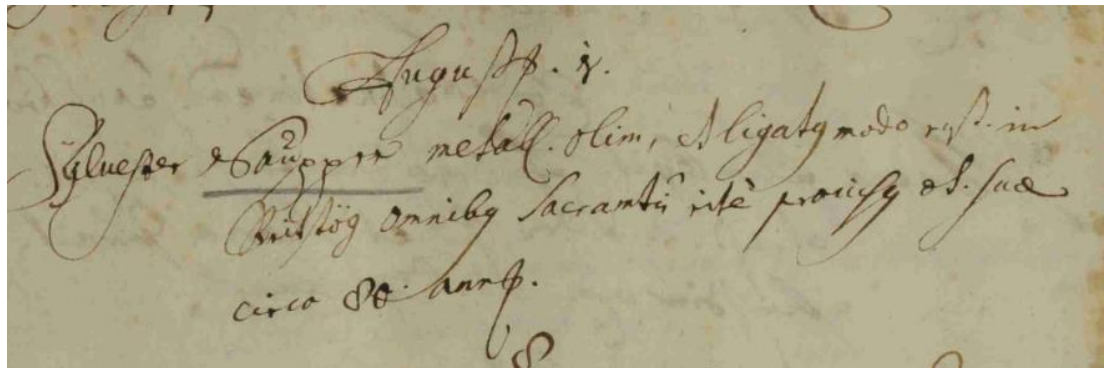 August. 1.
Sylvester Saupper metall. olim, et ligatq modo rust. in
omnibq Sacramtis rite provisq et. suae
circa 80. annor.